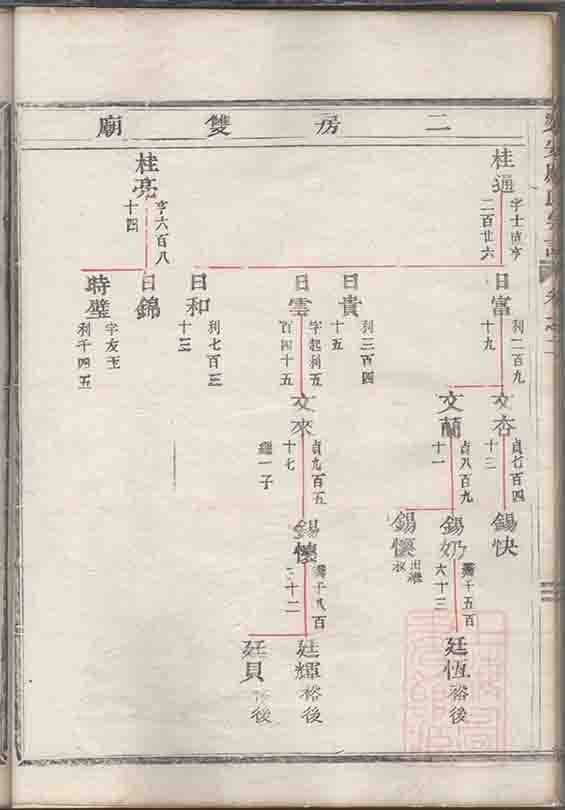 二房雙廟
桂通
字士道亨
二百廿六
桂亮
亨六百八
十四
日富
利二百九
十九
日貴
利三百四
十五
日雲
字起利五
百四十五
日和
利七百三
十三
日錦
時璧
字友玉
利千四五
文杏
貞七百四
十三
文蘭
貞八百九
十一
文來
貞九百五
十七
繼一子
錫快
錫奶
千五百
六十三
錫懷
出繼
錫懷
千八百
三十二
廷恆
裕後
廷輝
裕後
廷貝
裕後